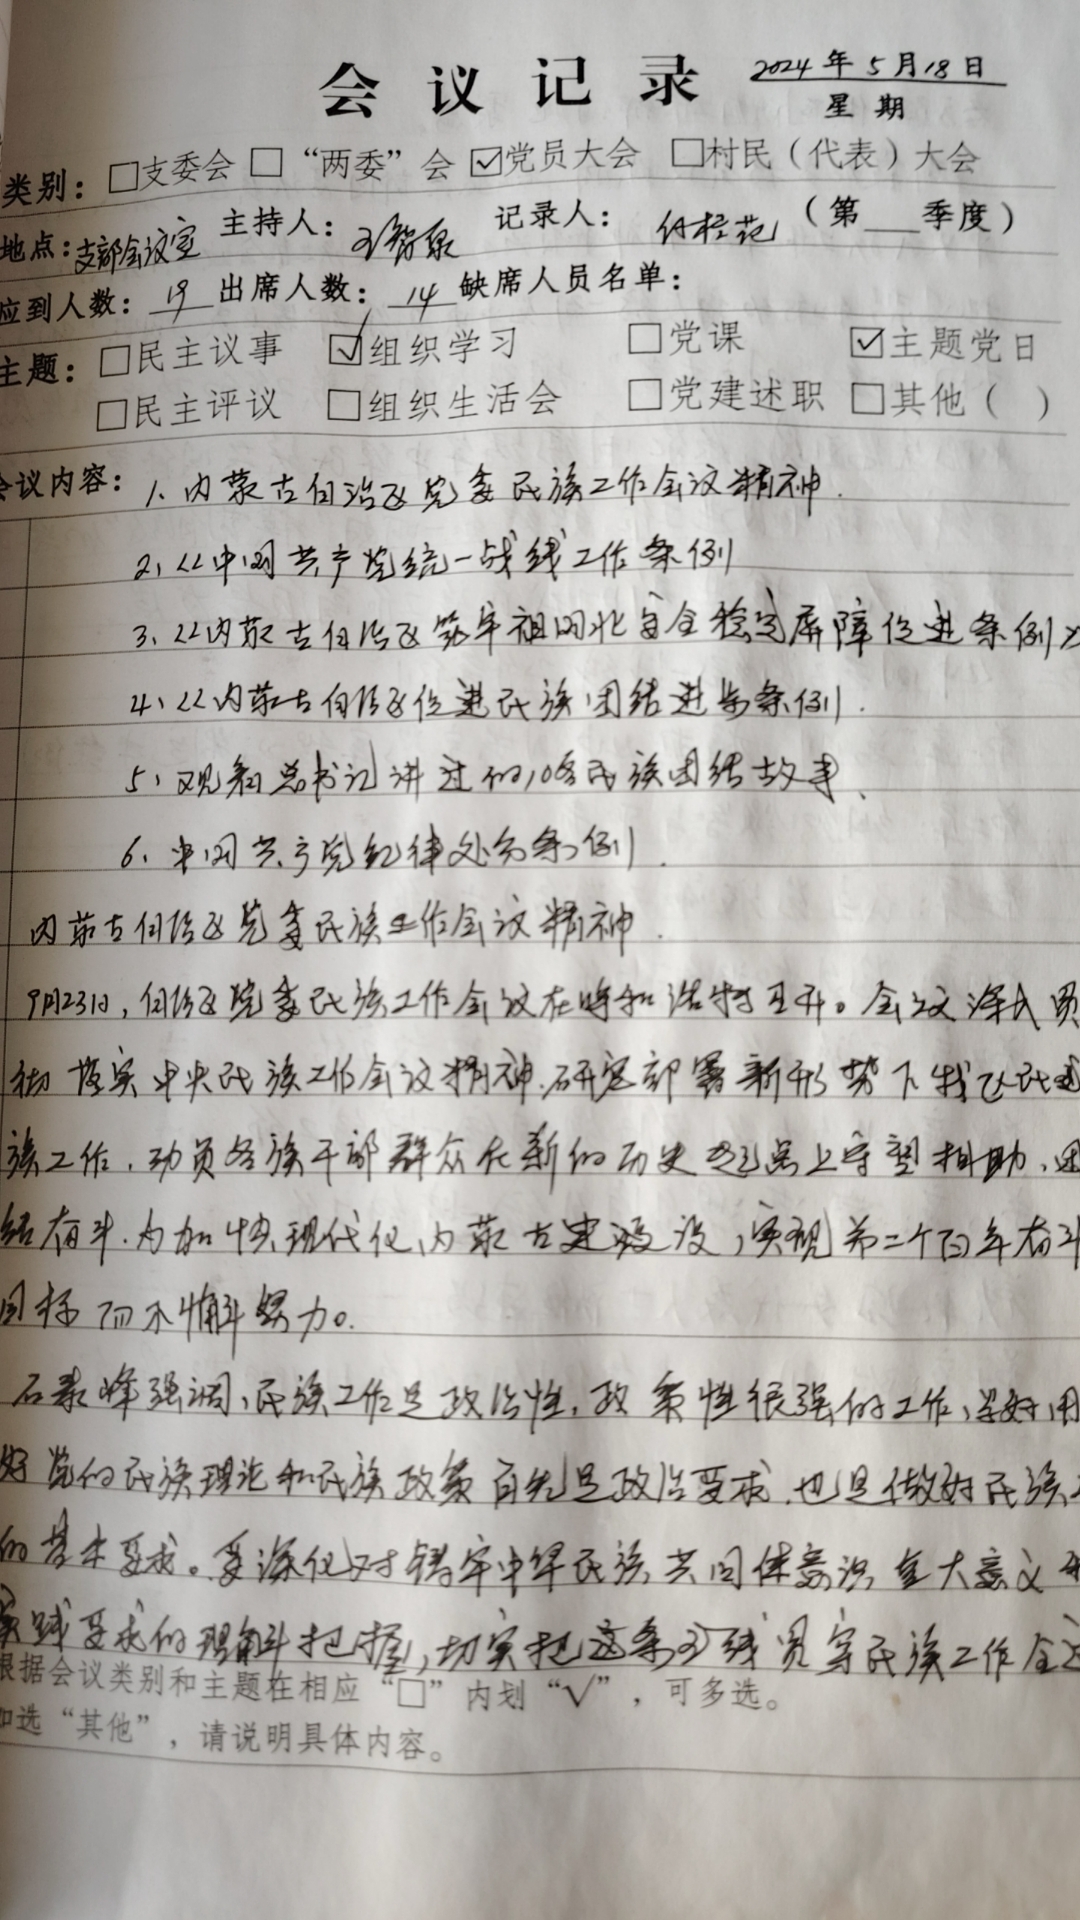 会议记录 2024年5月18日
星期
类别：□支委会 □“两委”会 ☑党员大会 □村民（代表）大会
地点：支部会议室 主持人： 记录人： （第___季度）
应到人数：19 出席人数：14 缺席人员名单：
主题：□民主议事 ☑组织学习 □党课 ☑主题党日
□民主评议 □组织生活会 □党建述职 □其他（ ）
会议内容：1、内蒙古自治区党委民族工作会议精神.
2、《中国共产党统一战线工作条例
3、《内蒙古自治区筑牢祖国北 安全稳定屏障促进条例》
4、《内蒙古自治区促进民族团结进步条例.
5、观看总书记讲过的10个民族团结故事、
6、中国共产党纪律处分条例.
内蒙古自治区党委民族工作会议精神.
9月23日,自治区党委民族工作会议在呼和浩特召开。会议深入贯
彻落实中央民族工作会议精神.研究部署新形势下我区民
族工作.动员各族干部群众在新的历史起点上守望相助、团
结奋斗.为加快现代化内蒙古建设,实现第二个百年奋斗
目标而不懈努力。
石泰峰强调,民族工作是政治性,政策性很强的工作,学好用
好党的民族理论和民族政策首先是政治要求.也是做好民族
的基本要求。要深化对铸牢中华民族共同体意识重大意义和
实践要求的理解把握,切实把这条主线贯穿民族工作全过
根据会议类别和主题在相应“□”内划“√”，可多选。
如选“其他”，请说明具体内容。